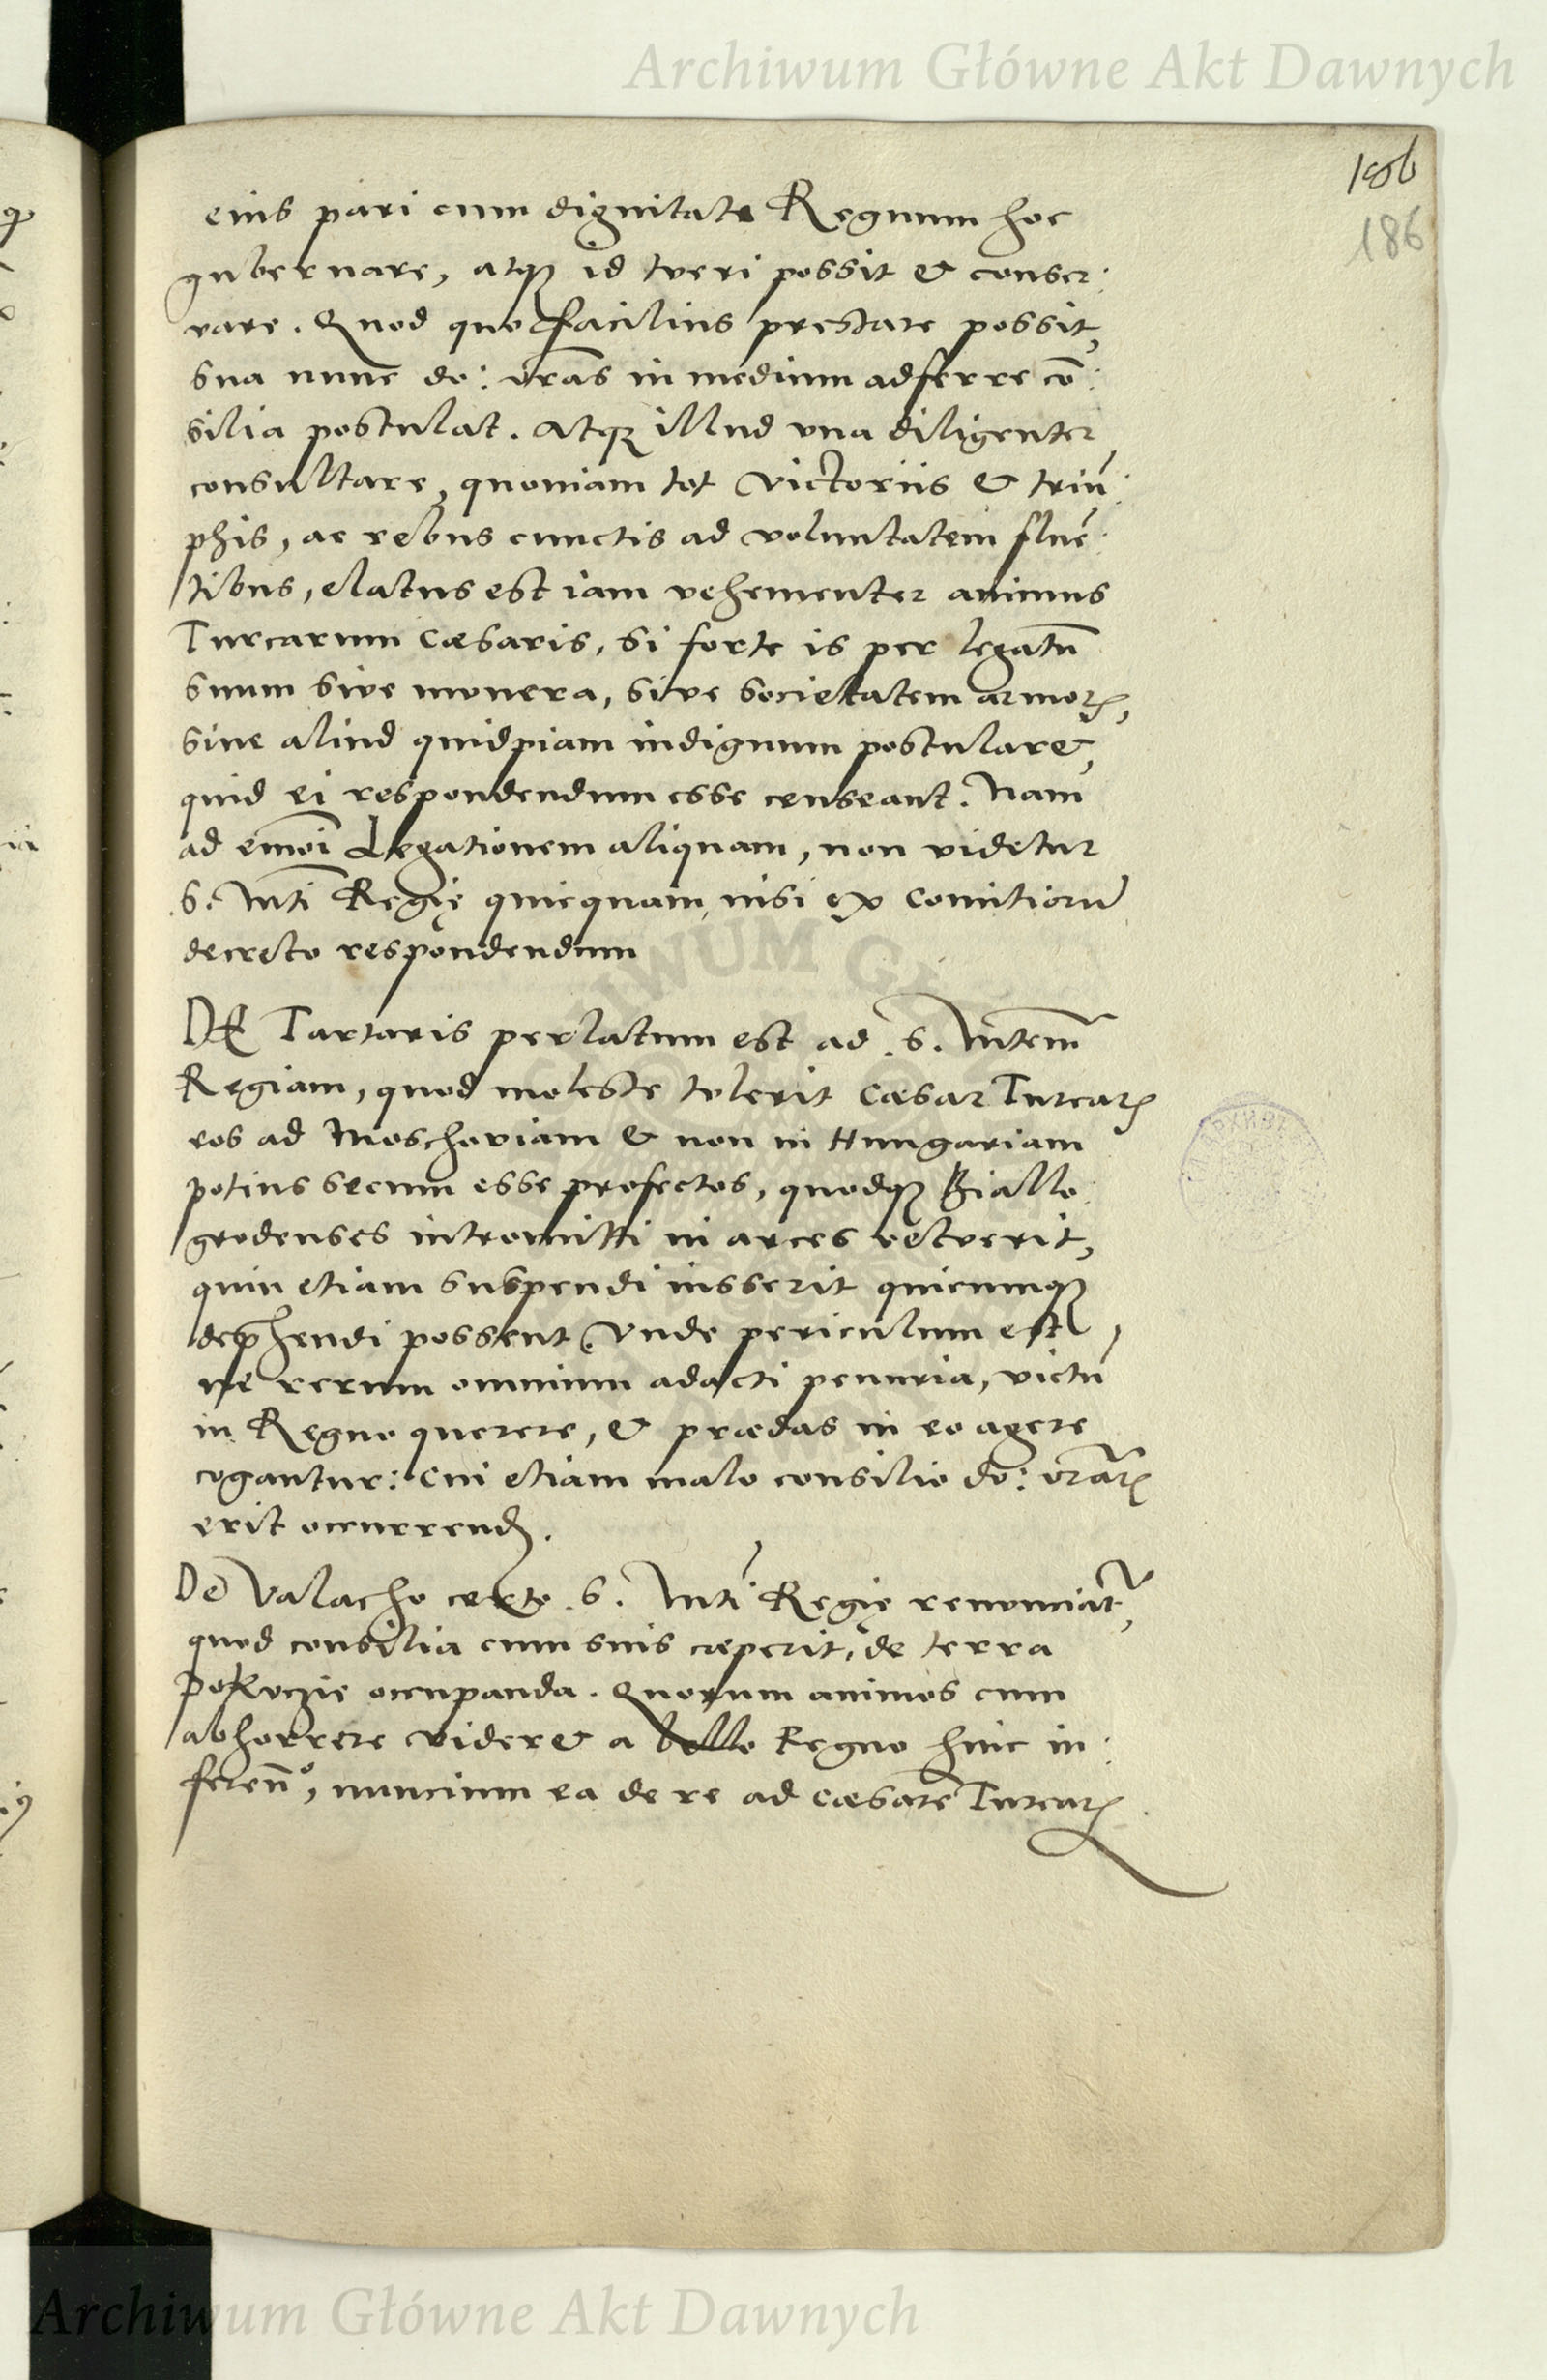 Archiwum Główne Akt Dawnych
186
186
eius pari cum dignitate Regnum hoc
gubernare, atq3 id tueri possit & conser:
vare. Quod quo facilius prestare possit,
sua nunc do: vr̃as in medium adferre cõ:
silia postulat. Atq3 illud una diligenter
consultare, quoniam tot victoriis & triũ:
phis, ac rebus cunctis ad voluntatem fluẽ:
tibus, elatus est iam vehementer animus
Turcarum Cæsaris, si forte is per legatũ
suum sive munera, sive societatem armoꝝ,
sive aliud quidpiam indignum postularet,
quid ei respondendum esse censeant. Nam
ad eiusmõi Legationem aliquam, non videtur
S. Mti Regię quicquam, nisi ex Comitiorũ
decreto respondendum
DE Tartaris perlatum est ad S. Mtem̃
Regiam, quod moleste tulerit Cæsar Turcaꝝ
eos ad Moschoviam & non in Hungariam
potius secum esse profectos, quodq3 Biallo
grodenses intromitti in arces vetuerit,
quin etiam suspendi iusserit quicunq3
dep̃hendi possent. Unde periculum est,
ne rerum omnium adacti penuria, victũ
in Regno querere, & prædas in eo agere
cogantur: Cui etiam malo consilio do: vr̃aꝝ
erit occurrend.
De Valacho certo S. Mti Regię renunciat̃,
quod consilia cum suis cæperit, de terra
Pokuczie occupanda. Quorum animos cum
abhorrere videret a bello Regno huic in:
ferenñ°, nuncium ea de re ad Cæsarẽ Turcaꝝ
Archiwum Główne Akt Dawnych